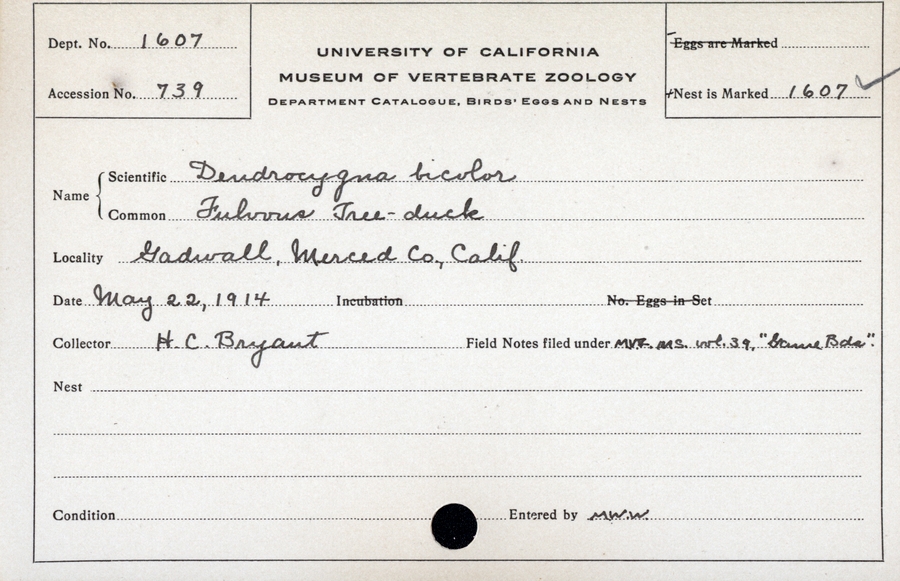 Dept. No. 1607
Accession No. 739
UNIVERSITY OF CALIFORNIA
MUSEUM OF VERTEBRATE ZOOLOGY
DEPARTMENT CATALOGUE, BIRDS' EGGS AND NESTS
Eggs are Marked
Nest is Marked 1607
Name
Scientific Dendrocygna bicolor
Common Fulvous Tree-duck
Locality Gadwall, Merced Co., Calif.
Date May 22, 1914 Incubation No. Eggs in Set
Collector H. C. Bryant Field Notes filed under MVZ. MS. vol. 39, "Game Bds".
Nest
Condition Entered by M.W.W.